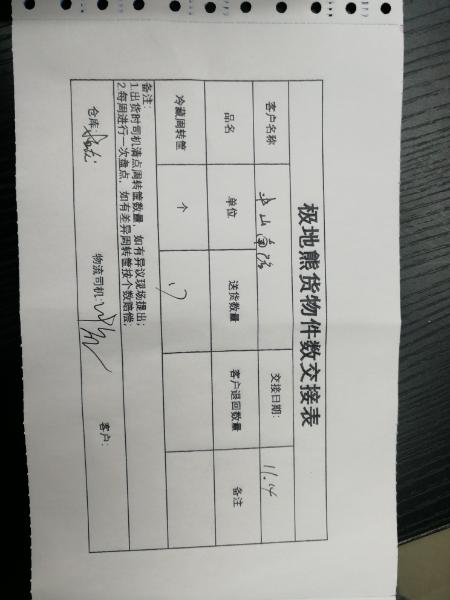 极地熊货物件数交接表
客户名称 交接日期: 11.14
品名 单位 送货数量 客户退回数量 备注
冷藏周转筐 个 17
备注:
1.出货时司机清点周转筐数量，如有异议现场提出；
2.每周进行一次盘点，如有差异周转筐按个数赔偿；
仓库: 物流司机: 客户: